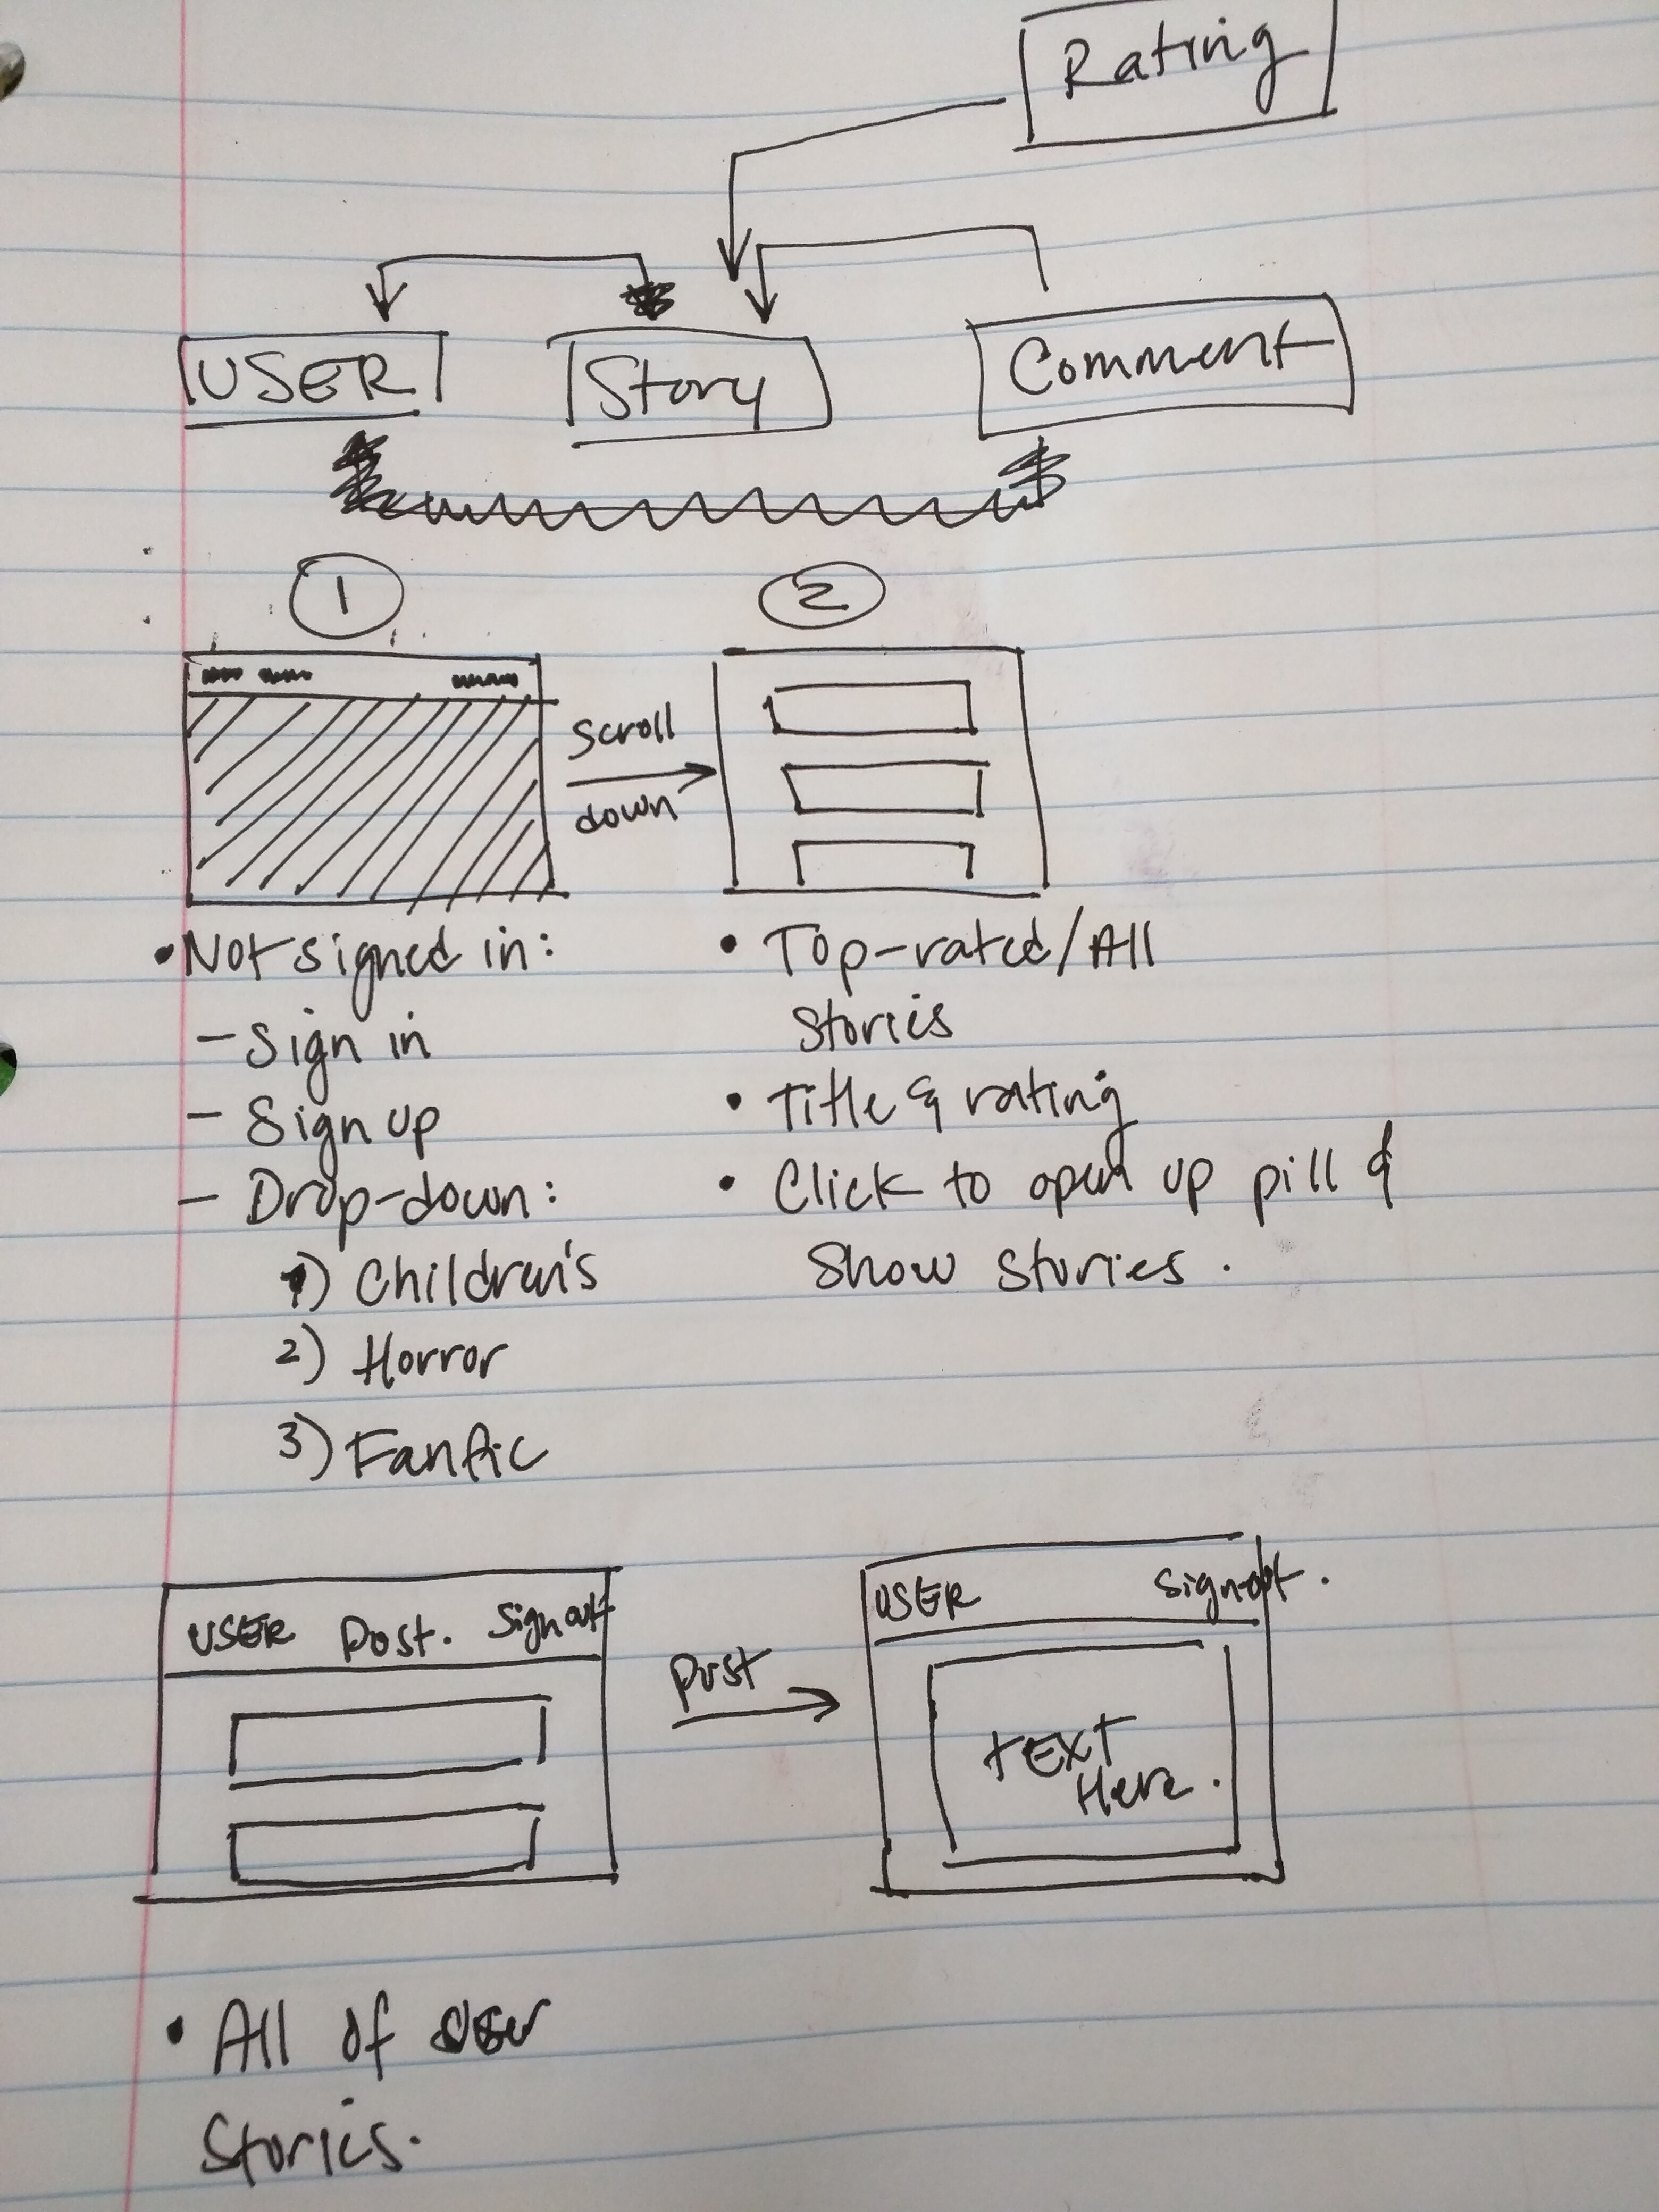 Rating
USER
Story
Comment
1
2
Scroll
down
• Not signed in:
- Sign in
- Sign up
- Drop-down:
1) Children's
2) Horror
3) Fanfic
• Top-rated/All
Stories
• Title & rating
• Click to open up pill &
Show stories.
USER Post. Sign out
post
USER Sign out.
TEXT
Here.
• All of user
Stories.